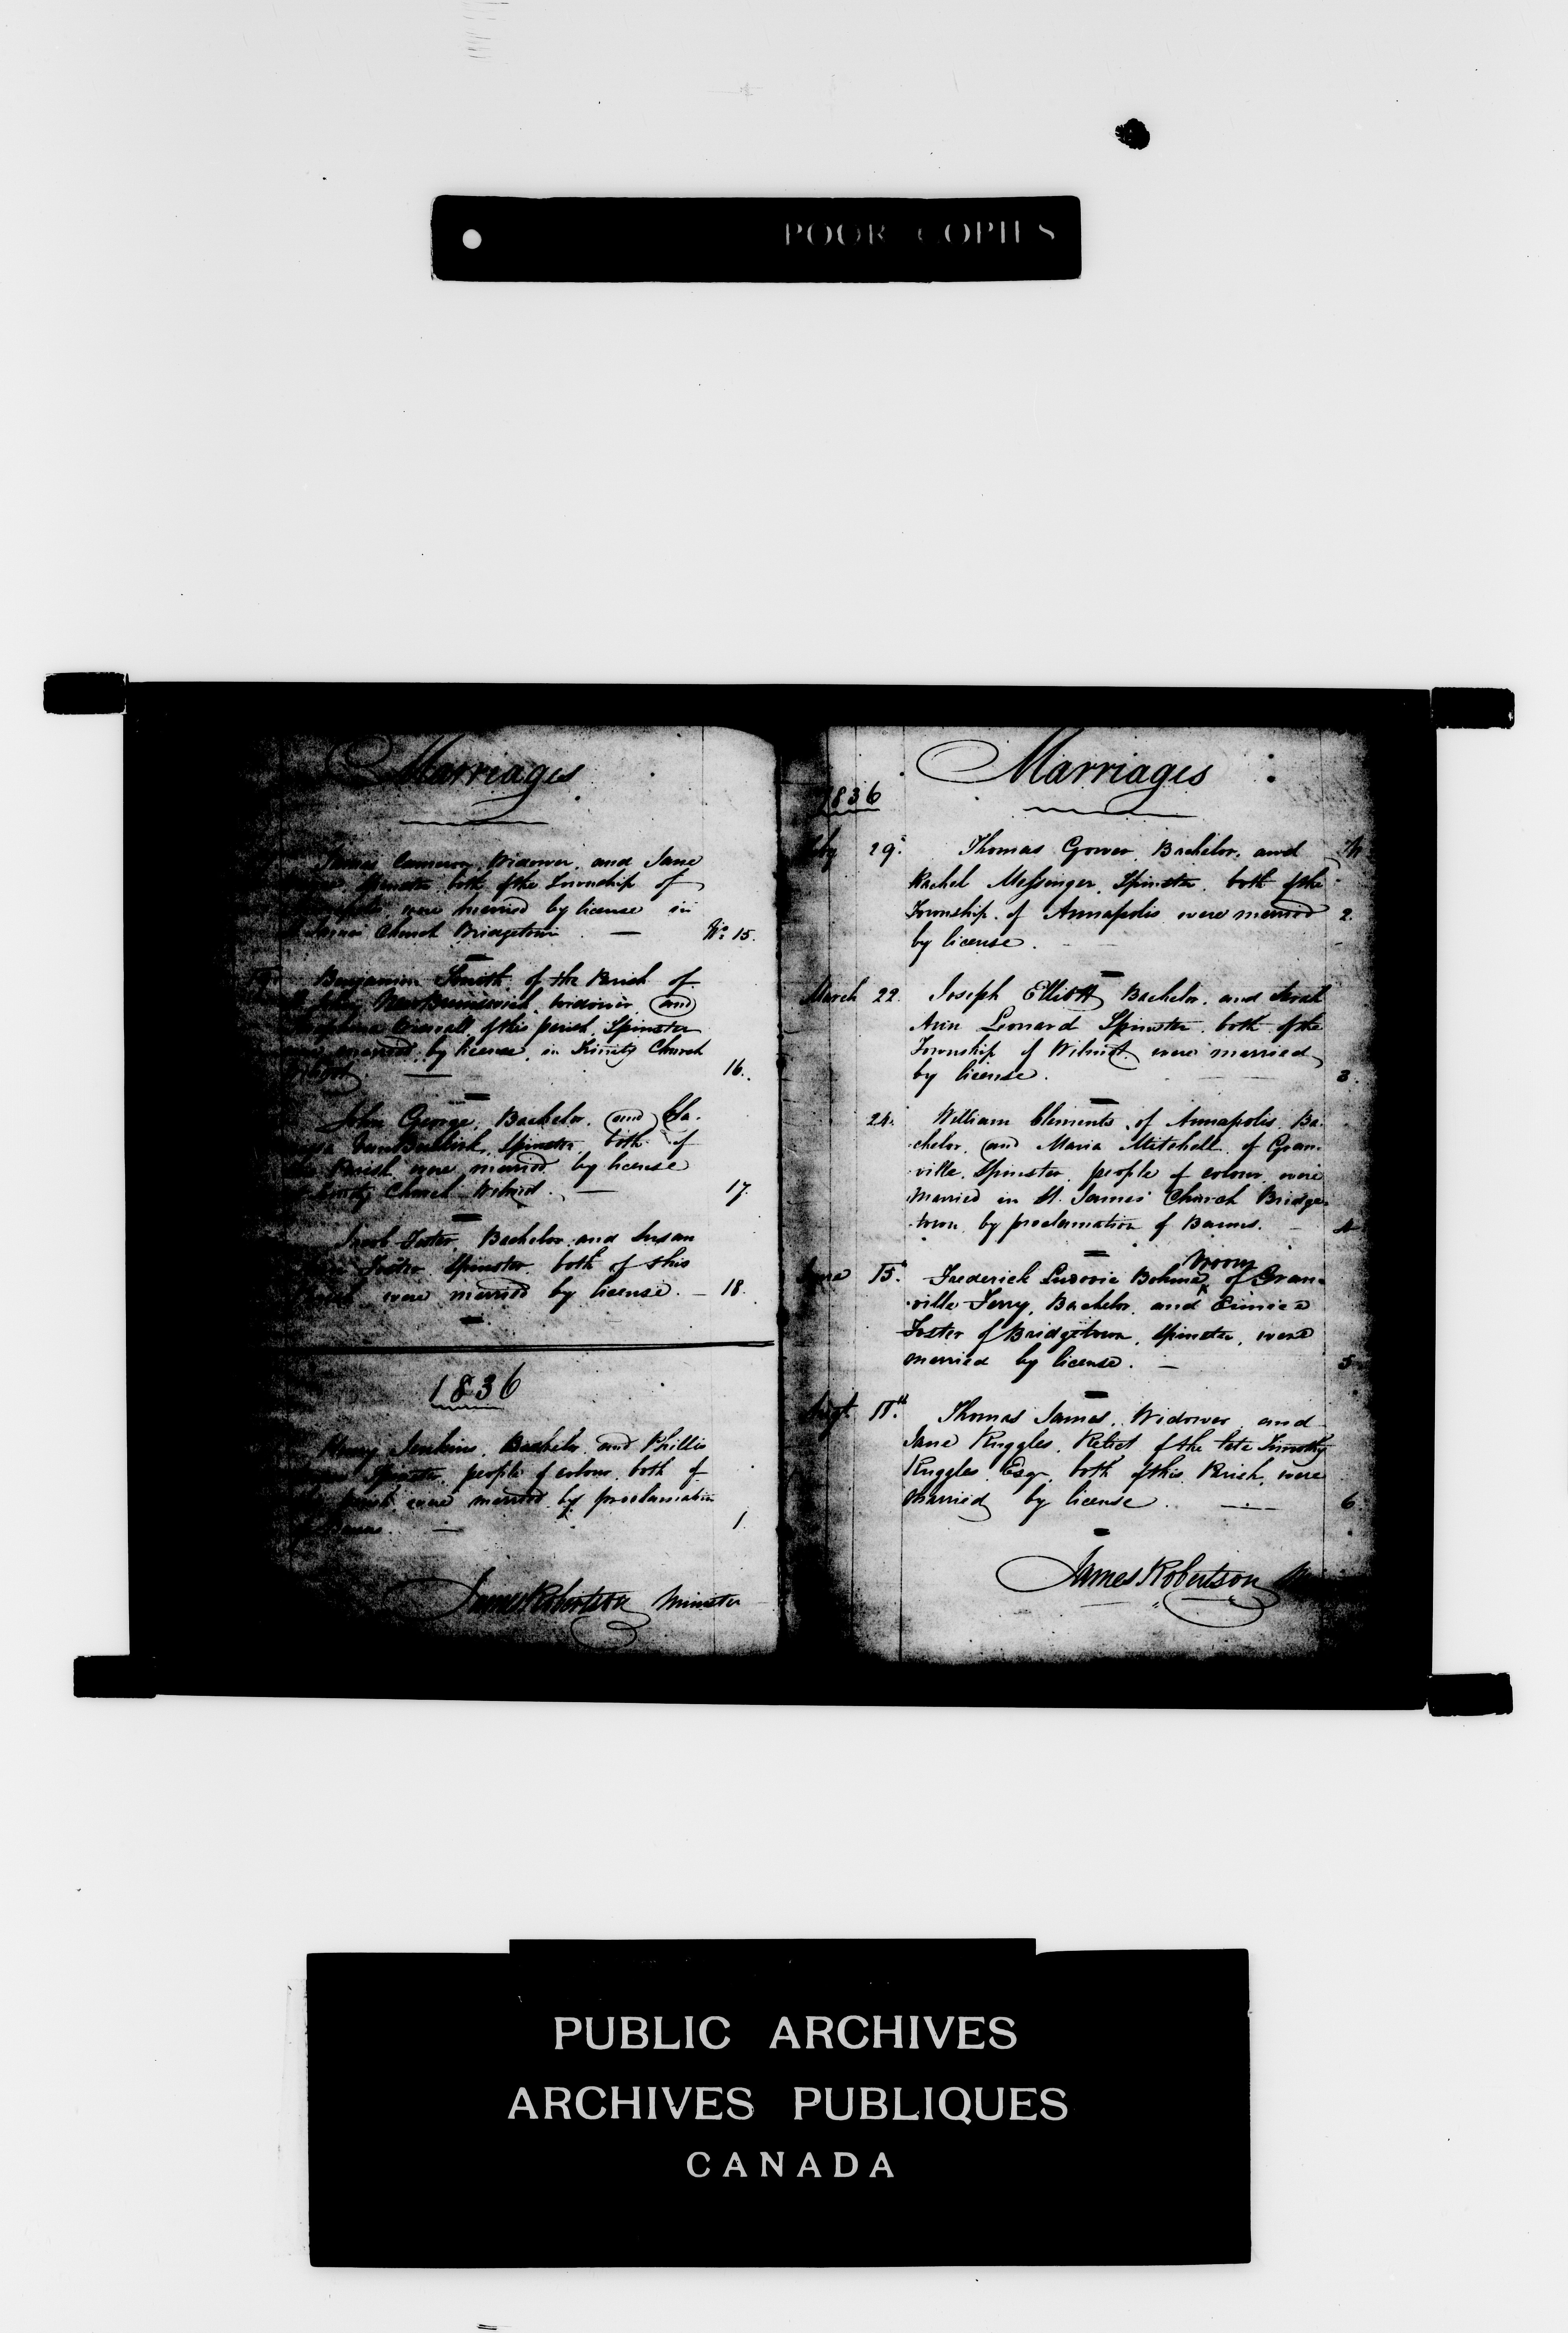 POOR COPIES
Marriages
James Cameron, Widower, and Jane
Spinster both of the Township of
were married by license in
Church Bridgetown. — No. 15.
Benjamin Smith, of the Parish of
New Brunswick, widower, and
of this parish, Spinster
married, by license, in Trinity Church
16.
John George, Bachelor, and Cla-
Spinster, both of
Parish were married by license
Trinity Church Wilmot. — 17.
Jacob Foster, Bachelor and Susan
Foster Spinster both of this
were married by license. — 18.
1836
Henry Jenkins, Bachelor, and Phillis
Spinster, people of colour, both of
Parish, were married by proclamation
of Banns. — 1.
James Robertson Minister
Marriages
1836
29. Thomas Gower, Bachelor, and
Rachel Messenger, Spinster, both of the
Township of Annapolis were married 2.
by license.
March 22. Joseph Elliott Bachelor, and Sarah
Ann Leonard Spinster, both of the
Township of Wilmot were married
by license. 3.
24. William Clements, of Annapolis, Ba-
chelor, and Maria Mitchell, of Gran-
ville, Spinster, people of colour, were
married in St. James' Church Bridge-
town, by proclamation of Banns. 4
15. Frederick Ludovic of Gran-
ville Ferry, Bachelor, and
Foster of Bridgetown, Spinster, were
married by license. — 5
Augt 11th. Thomas James, Widower, and
Jane Ruggles, Relict of the late Timothy
Ruggles, Esqr, both of this Parish, were
married by license. 6.
James Robertson
PUBLIC ARCHIVES
ARCHIVES PUBLIQUES
CANADA